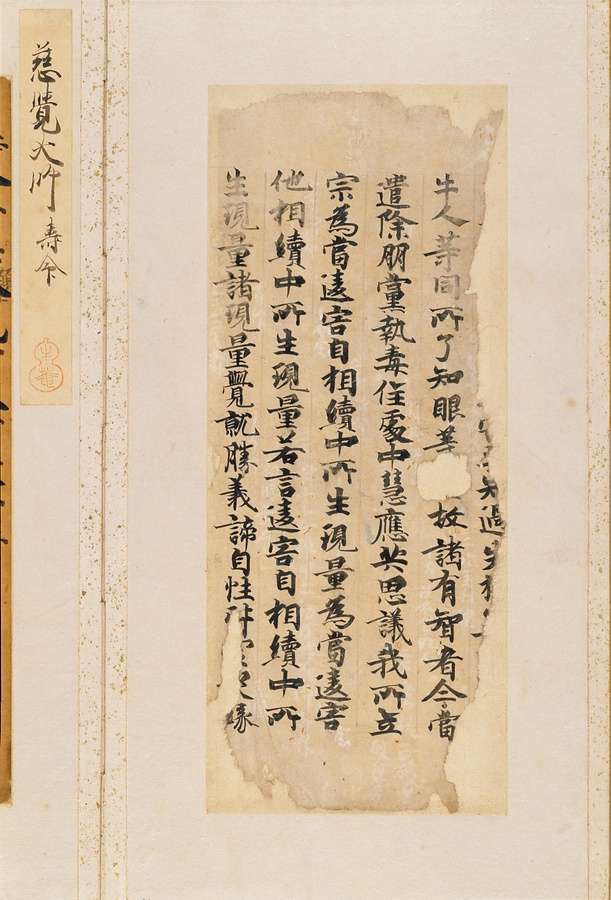 知過失
牛人等同所了知眼等故諸有智者今當
遣除朋黨執毒住處中慧應共思議我所立
宗為當違害自相續中所生現量為當違害
他相續中所生現量若言違害自相續中所
生現量諸現量覺就勝義諦自性緣
慈覺大師 寿命